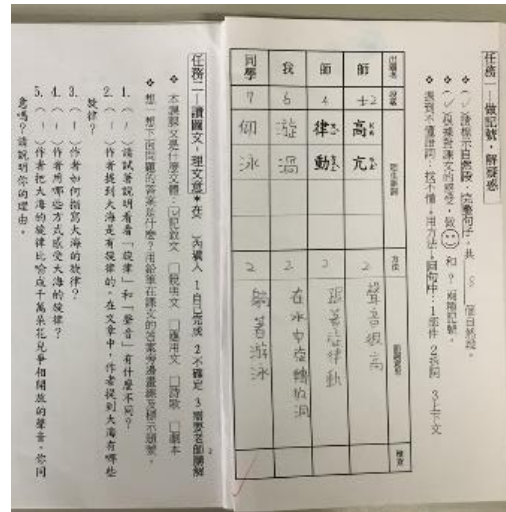 任務一—做記號,解疑惑
(✓)請標示自然段、完整句子,共 8 個自然段。
(✓)根據對課文的感受,做☺和?兩種記號。
遇到不懂語詞:找不懂→用方法→回句中:1部件 2換詞 3上下文
出題者 方法 檢查
師 ±2 高亢 2 聲音很高
師 4 律動 2 跟著旋律動
我 6 漩渦 2 在水中旋轉的洞
同學 7 仰泳 2 躺著游泳
任務二—讀圖文,理文意*在( )內填入 1自己完成 2不確定 3需要老師講解
本課課文是什麼文體:☑記敘文 □說明文 □應用文 □詩歌 □劇本
想一想下面問題的答案是什麼?用鉛筆在課文的答案旁邊畫線及標示題號。
1.(1)請試著說明看看「旋律」和「聲音」有什麼不同?
2.(1)作者提到大海是有旋律的,在文章中,作者提到大海有哪些
旋律?
3.(1)作者如何描寫大海的旋律?
4.(1)作者用哪些方式感受大海的旋律?
5.(1)作者把大海的旋律比喻成千萬朵花兒爭相開放的聲音,你同
意嗎?請說明你的理由。
2